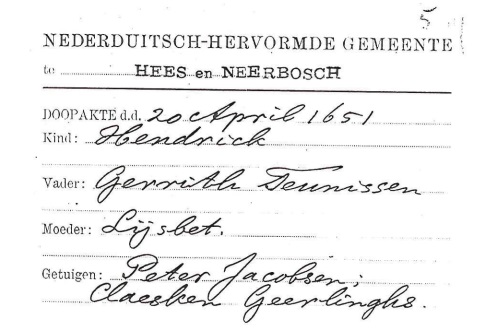 5
NEDERDUITSCH-HERVORMDE GEMEENTE
te HEES en NEERBOSCH
DOOPAKTE d.d. 20 April 1651
Kind: Hendrick
Vader: Gerrith Teunissen
Moeder: Lijsbet.
Getuigen: Peter Jacobsen;
Claesken Geerlinghs.